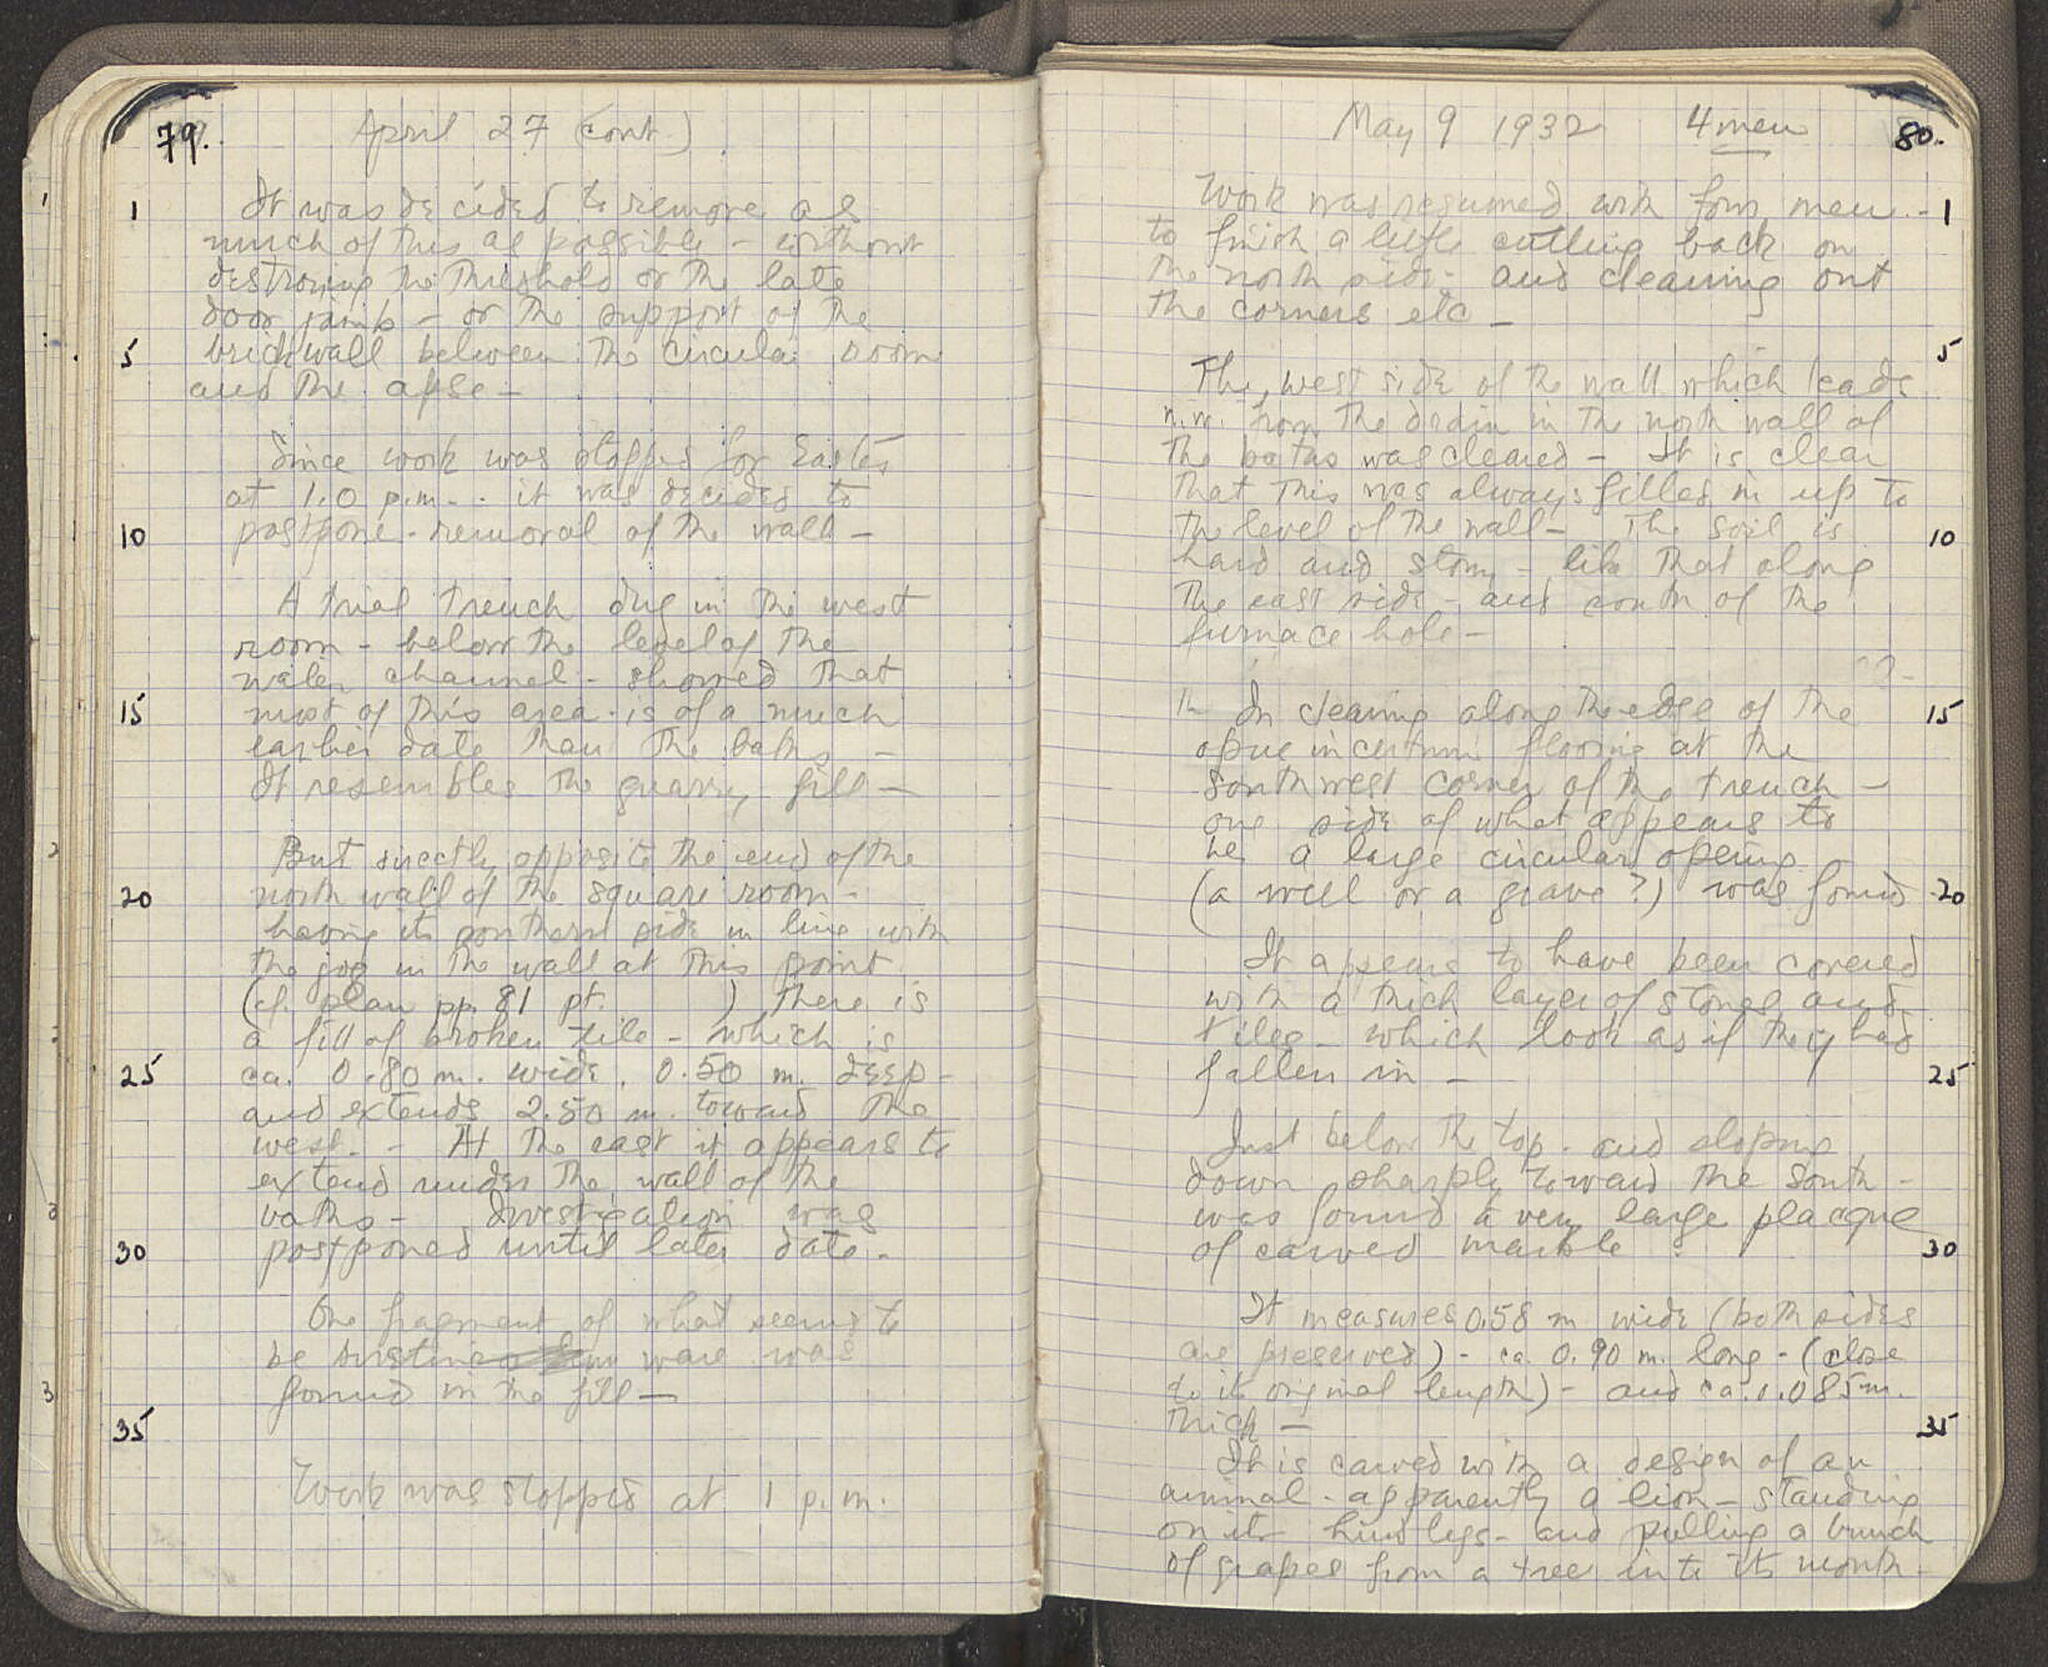 79. April 27 (cont.)
1 It was decided to remove as
much of this as possible - without
destroying the threshold or the late
door jamb - or the support of the
5 brick wall between the circular room
and the apse -
Since work was stopped for Easter
at 1.0 p.m. - it was decided to
10 postpone - removal of the wall -
A trial trench dug in the west
room - below the level of the
water channel - showed that
15 most of this area - is of a much
earlier date than the baths -
It resembles the quarry fill -
But directly opposite the end of the
20 north wall of the square room -
having its southern side in line with
the jog in the wall at this point
(cf. plan pp. 81 pt. ) there is
a fill of broken tile - which is
25 ca. 0.80 m. wide. 0.50 m. deep -
and extends 2.50 m. toward the
west. - At the east it appears to
extend under the wall of the
baths - Investigation was
30 postponed until later date -
One fragment of what seems to
be ware was
found in the fill -
35
Work was stopped at 1 p.m.
May 9 1932 4 men 80.
Work was resumed with four men - 1
to finish a little cutting back on
the north side - and cleaning out
the corners etc -
5
The west side of the wall which leads
n.w. from the drain in the north wall of
the baths was cleared - It is clear
that this was always filled in up to
the level of the wall - The soil is 10
hard and stony - like that along
the east side - and south of the
furnace hole -
In cleaning along the edge of the 15
opus incertum flooring at the
southwest corner of the trench -
one side of what appears to
be a large circular opening
(a well or a grave?) was found 20
It appears to have been covered
with a thick layer of stones and
tiles - which look as if they had
fallen in - 25
Just below the top - and sloping
down sharply toward the south -
was found a very large placque
of carved marble. 30
It measures 0.58 m wide (both sides
are preserved) - ca. 0.90 m. long - (close
to its original length) - and ca. 0.085 m.
thick - 35
It is carved with a design of an
animal - apparently a lion - standing
on its hind legs - and pulling a bunch
of grapes from a tree into its mouth.